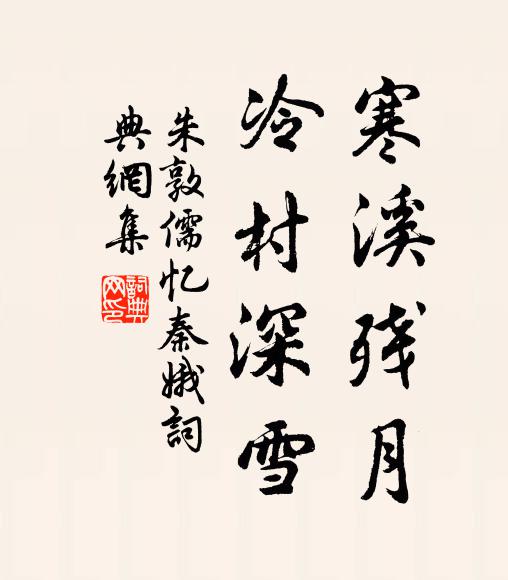 寒溪残月
冷村深雪
朱敦儒忆秦娥詞
典網集
詞典网印